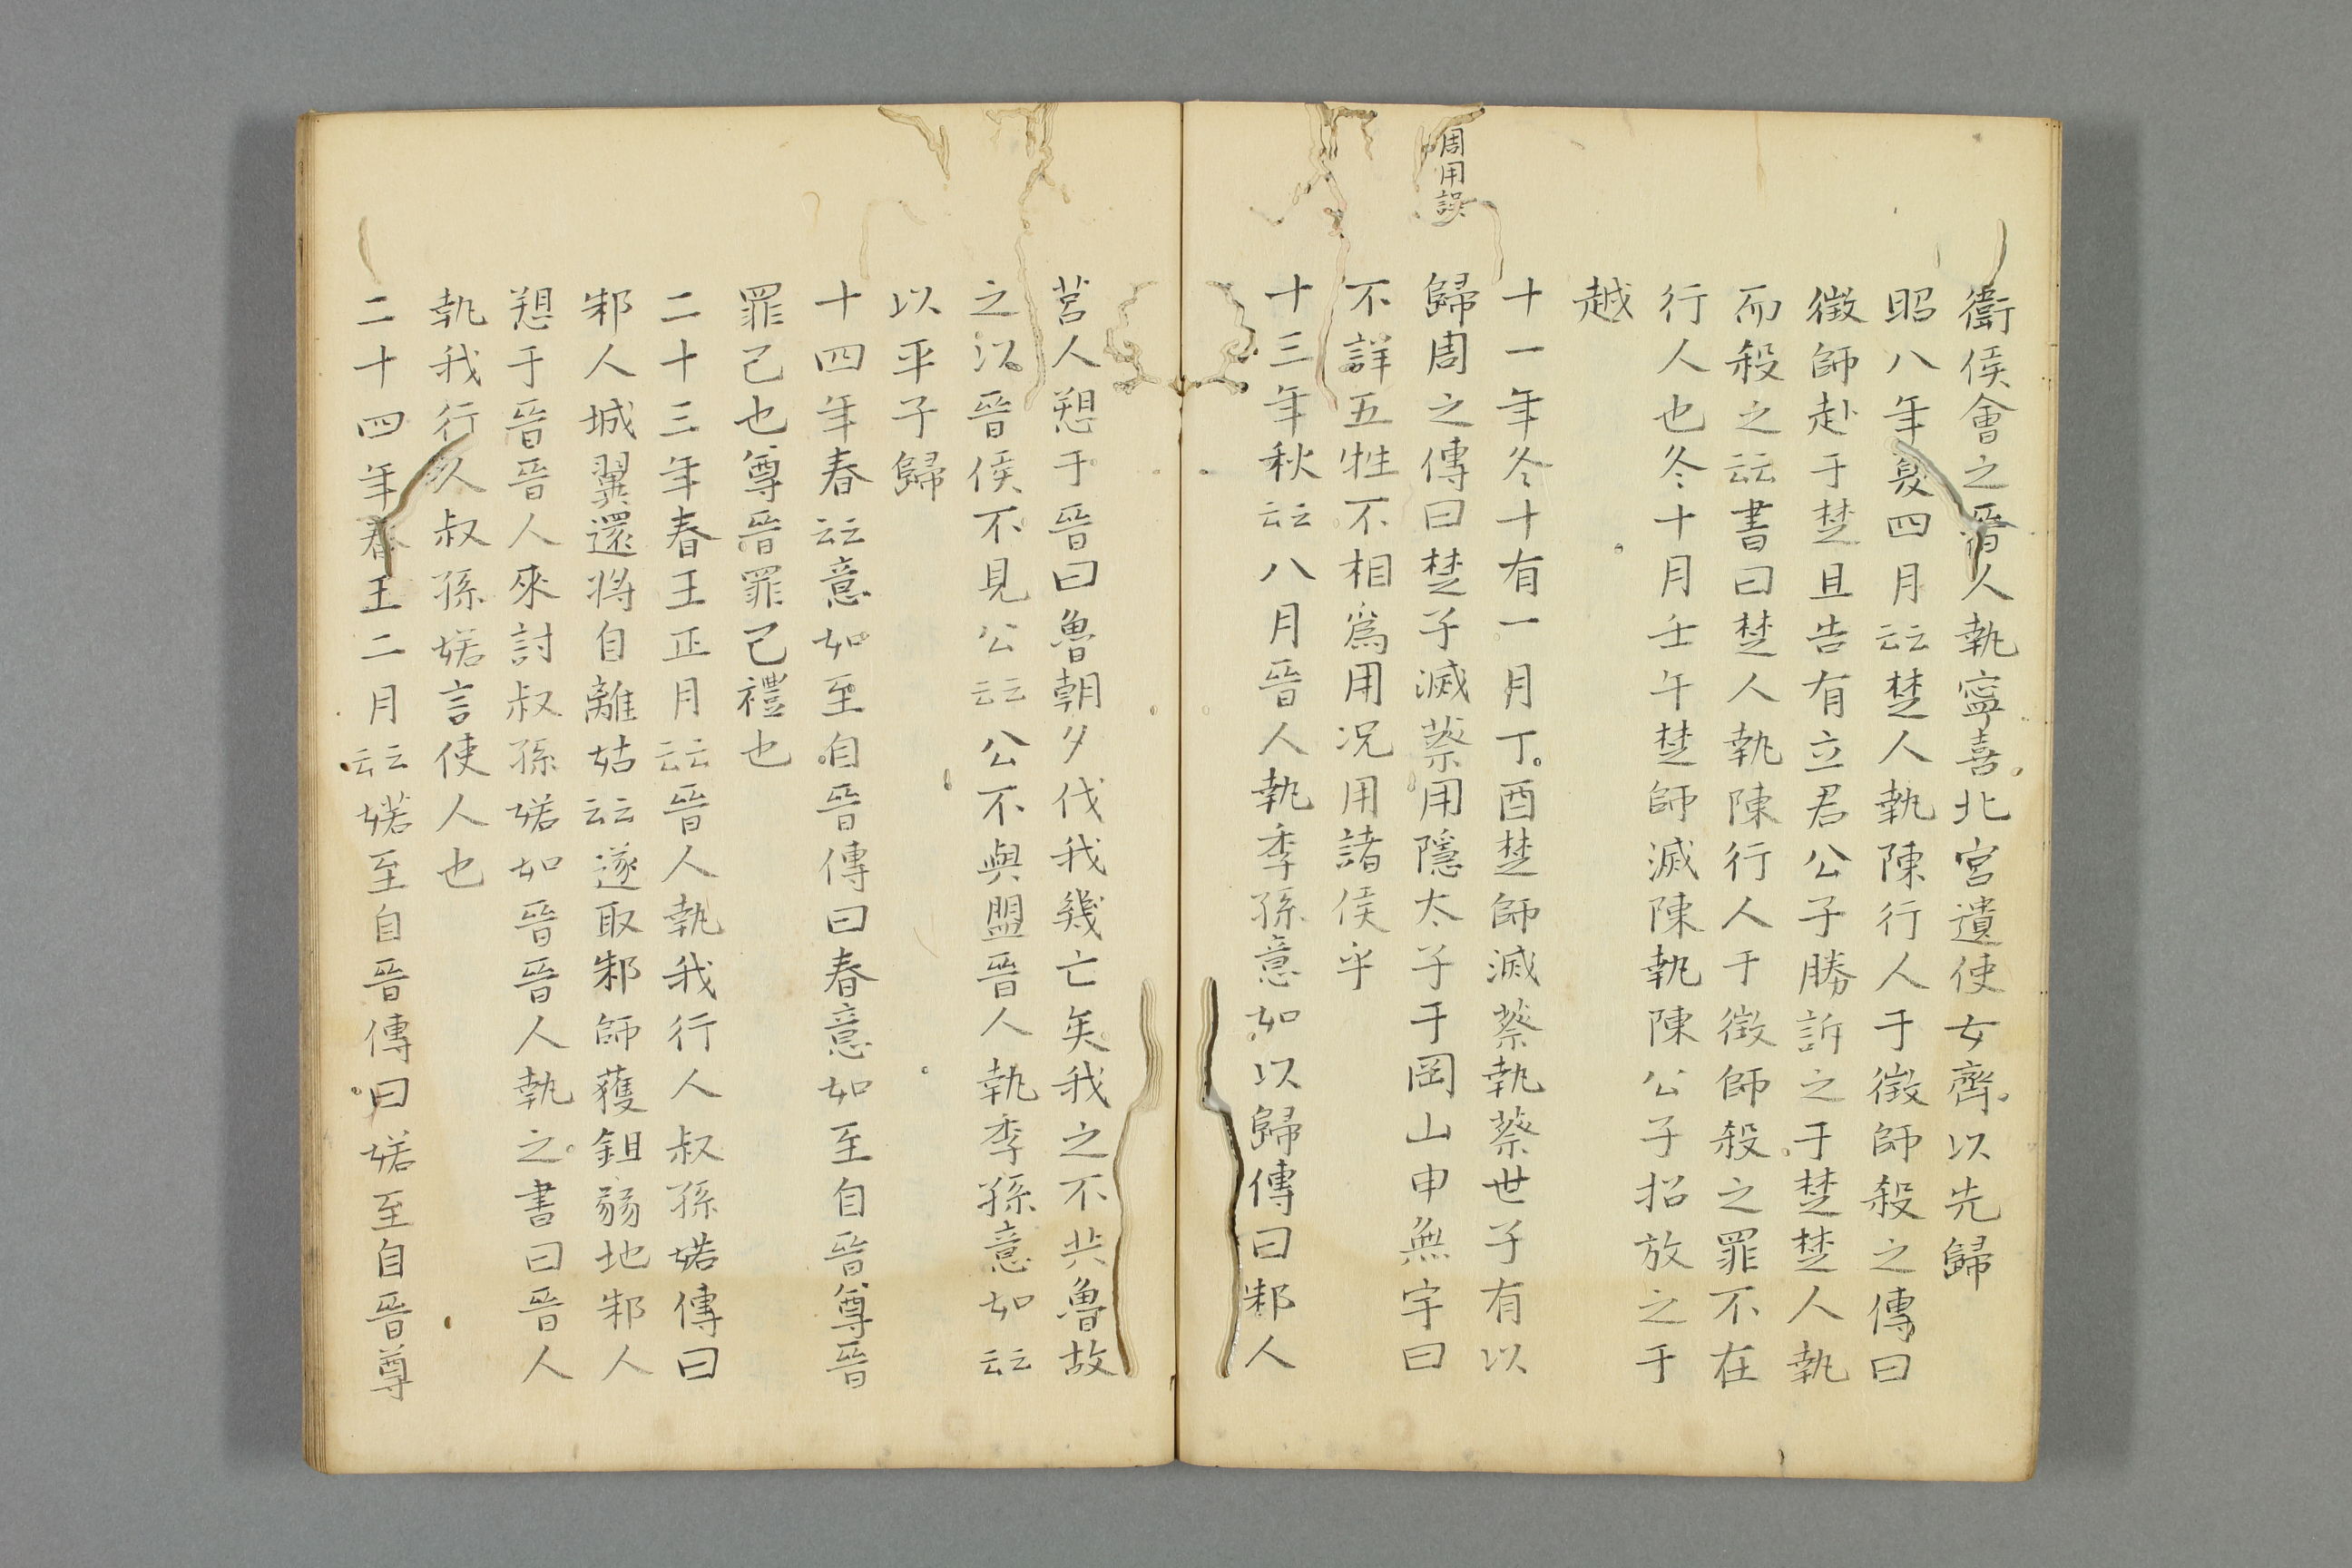 衞侯會之晉人執寧喜北宮遺使女齊以先歸
昭八年夏四月云云楚人執陳行人于徴師殺之傳曰
徴師赴于楚且告有立君公子勝訴之于楚楚人執
而殺之云云書曰楚人執陳行人于徴師殺之罪不在
行人也冬十月壬午楚師滅陳執陳公子招放之于
越
十一年冬十有一月丁酉楚師滅蔡執蔡世子有以
周用誤
歸周之傳曰楚子滅蔡用隱太子于岡山申無宇曰
不詳五牲不相爲用况用諸侯乎
十三年秋云云八月晉人執季孫意如以歸傳曰邾人
莒人愬于晉曰魯朝夕伐我幾亡矣我之不共魯故
之以晉侯不見公云云公不與盟晉人執季孫意如云云
以平子歸
十四年春云云意如至自晉傳曰春意如至自晉尊晉
罪己也尊晉罪己禮也
二十三年春王正月云云晉人執我行人叔孫婼傳曰
邾人城翼還将自離姑云云遂取邾師獲鉏弱地邾人
愬于晉晉人來討叔孫婼如晉晉人執之書曰晉人
執我行人叔孫婼言使人也
二十四年春王二月云云婼至自晉傳曰婼至自晉尊